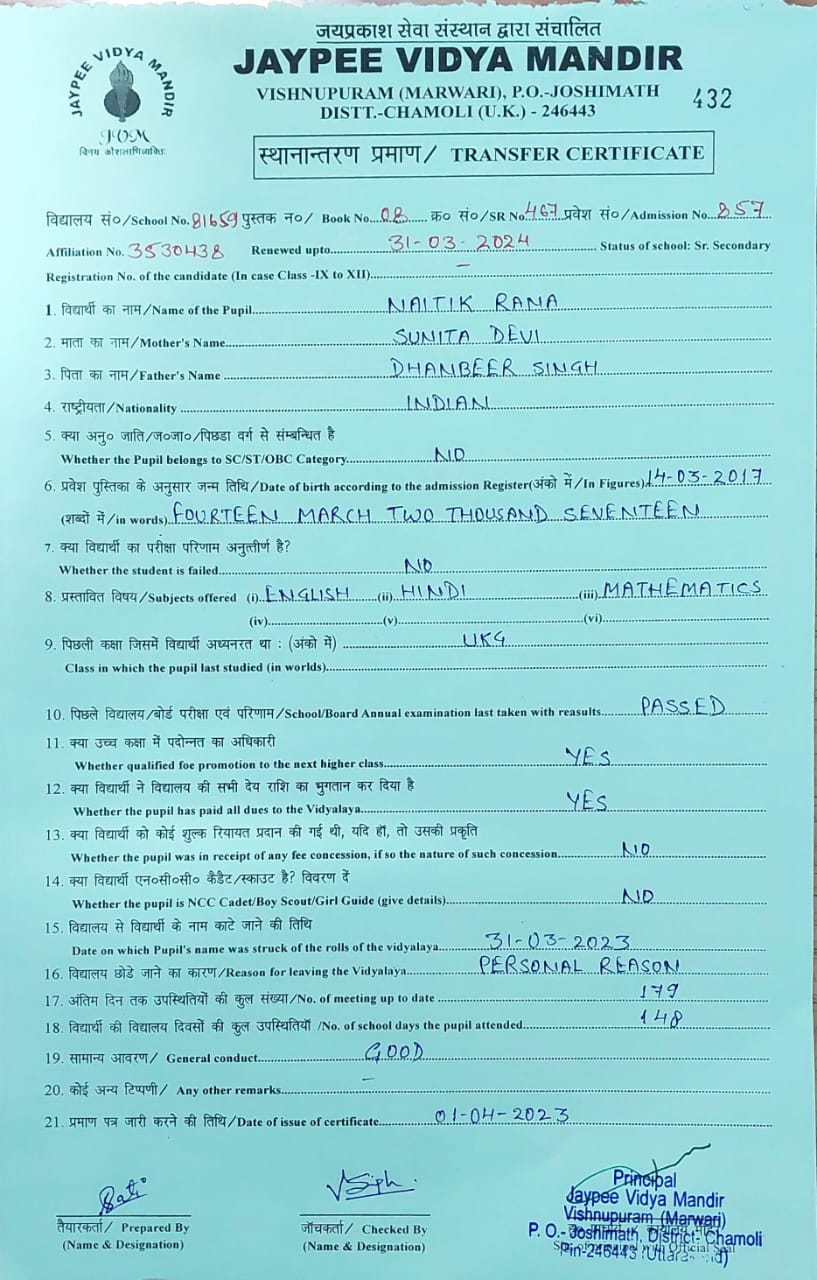 जयप्रकाश सेवा संस्थान द्वारा संचालित
JAYPEE VIDYA MANDIR
JAYPEE VIDYA MANDIR
VISHNUPURAM (MARWARI), P.O.-JOSHIMATH
432
DISTT.-CHAMOLI (U.K.) - 246443
JVM
स्थानान्तरण प्रमाण/ TRANSFER CERTIFICATE
विद्यालय सं०/School No. 81659 पुस्तक न०/ Book No. 08 क्र० सं०/SR No. 467 प्रवेश सं०/Admission No. 857
Affiliation No. 3530438 Renewed upto 31-03-2024 Status of school: Sr. Secondary
Registration No. of the candidate (In case Class -IX to XII) –
1. विद्यार्थी का नाम/Name of the Pupil NAITIK RANA
2. माता का नाम/Mother's Name SUNITA DEVI
3. पिता का नाम/Father's Name DHANBEER SINGH
4. राष्ट्रीयता/Nationality INDIAN
5. क्या अनु० जाति/ज०जा०/पिछडा वर्ग से संम्बन्धित है
Whether the Pupil belongs to SC/ST/OBC Category NO
6. प्रवेश पुस्तिका के अनुसार जन्म तिथि/Date of birth according to the admission Register(अंको में/In Figures) 14-03-2017
(शब्दों में/in words) FOURTEEN MARCH TWO THOUSAND SEVENTEEN
7. क्या विद्यार्थी का परीक्षा परिणाम अनुत्तीर्ण है?
Whether the student is failed NO
8. प्रस्तावित विषय/Subjects offered (i) ENGLISH (ii) HINDI (iii) MATHEMATICS
(iv) (v) (vi)
9. पिछली कक्षा जिसमें विद्यार्थी अध्यनरत था : (अंको में) UKG
Class in which the pupil last studied (in worlds)
10. पिछले विद्यालय/बोर्ड परीक्षा एवं परिणाम/School/Board Annual examination last taken with reasults PASSED
11. क्या उच्च कक्षा में पदोन्नत का अधिकारी
Whether qualified foe promotion to the next higher class YES
12. क्या विद्यार्थी ने विद्यालय की सभी देय राशि का भुगतान कर दिया है
Whether the pupil has paid all dues to the Vidyalaya YES
13. क्या विद्यार्थी को कोई शुल्क रियायत प्रदान की गई थी, यदि हाँ, तो उसकी प्रकृति
Whether the pupil was in receipt of any fee concession, if so the nature of such concession NO
14. क्या विद्यार्थी एन०सी०सी० कैडैट/स्काउट है? विवरण दें
Whether the pupil is NCC Cadet/Boy Scout/Girl Guide (give details) NO
15. विद्यालय से विद्यार्थी के नाम काटे जाने की तिथि
Date on which Pupil's name was struck of the rolls of the vidyalaya 31-03-2023
16. विद्यालय छोडे जाने का कारण/Reason for leaving the Vidyalaya PERSONAL REASON
17. अंतिम दिन तक उपस्थितियों की कुल संख्या/No. of meeting up to date 179
18. विद्यार्थी की विद्यालय दिवसों की कुल उपस्थितियाँ /No. of school days the pupil attended 148
19. सामान्य आवरण/ General conduct GOOD
20. कोई अन्य टिप्पणी/ Any other remarks –
21. प्रमाण पत्र जारी करने की तिथि/Date of issue of certificate 01-04-2023
Principal
Jaypee Vidya Mandir
Vishnupuram (Marwari)
P. O.- Joshimath, District- Chamoli
तैयारकर्ता/ Prepared By
(Name & Designation)
जाँचकर्ता/ Checked By
(Name & Designation)
Pin-246443